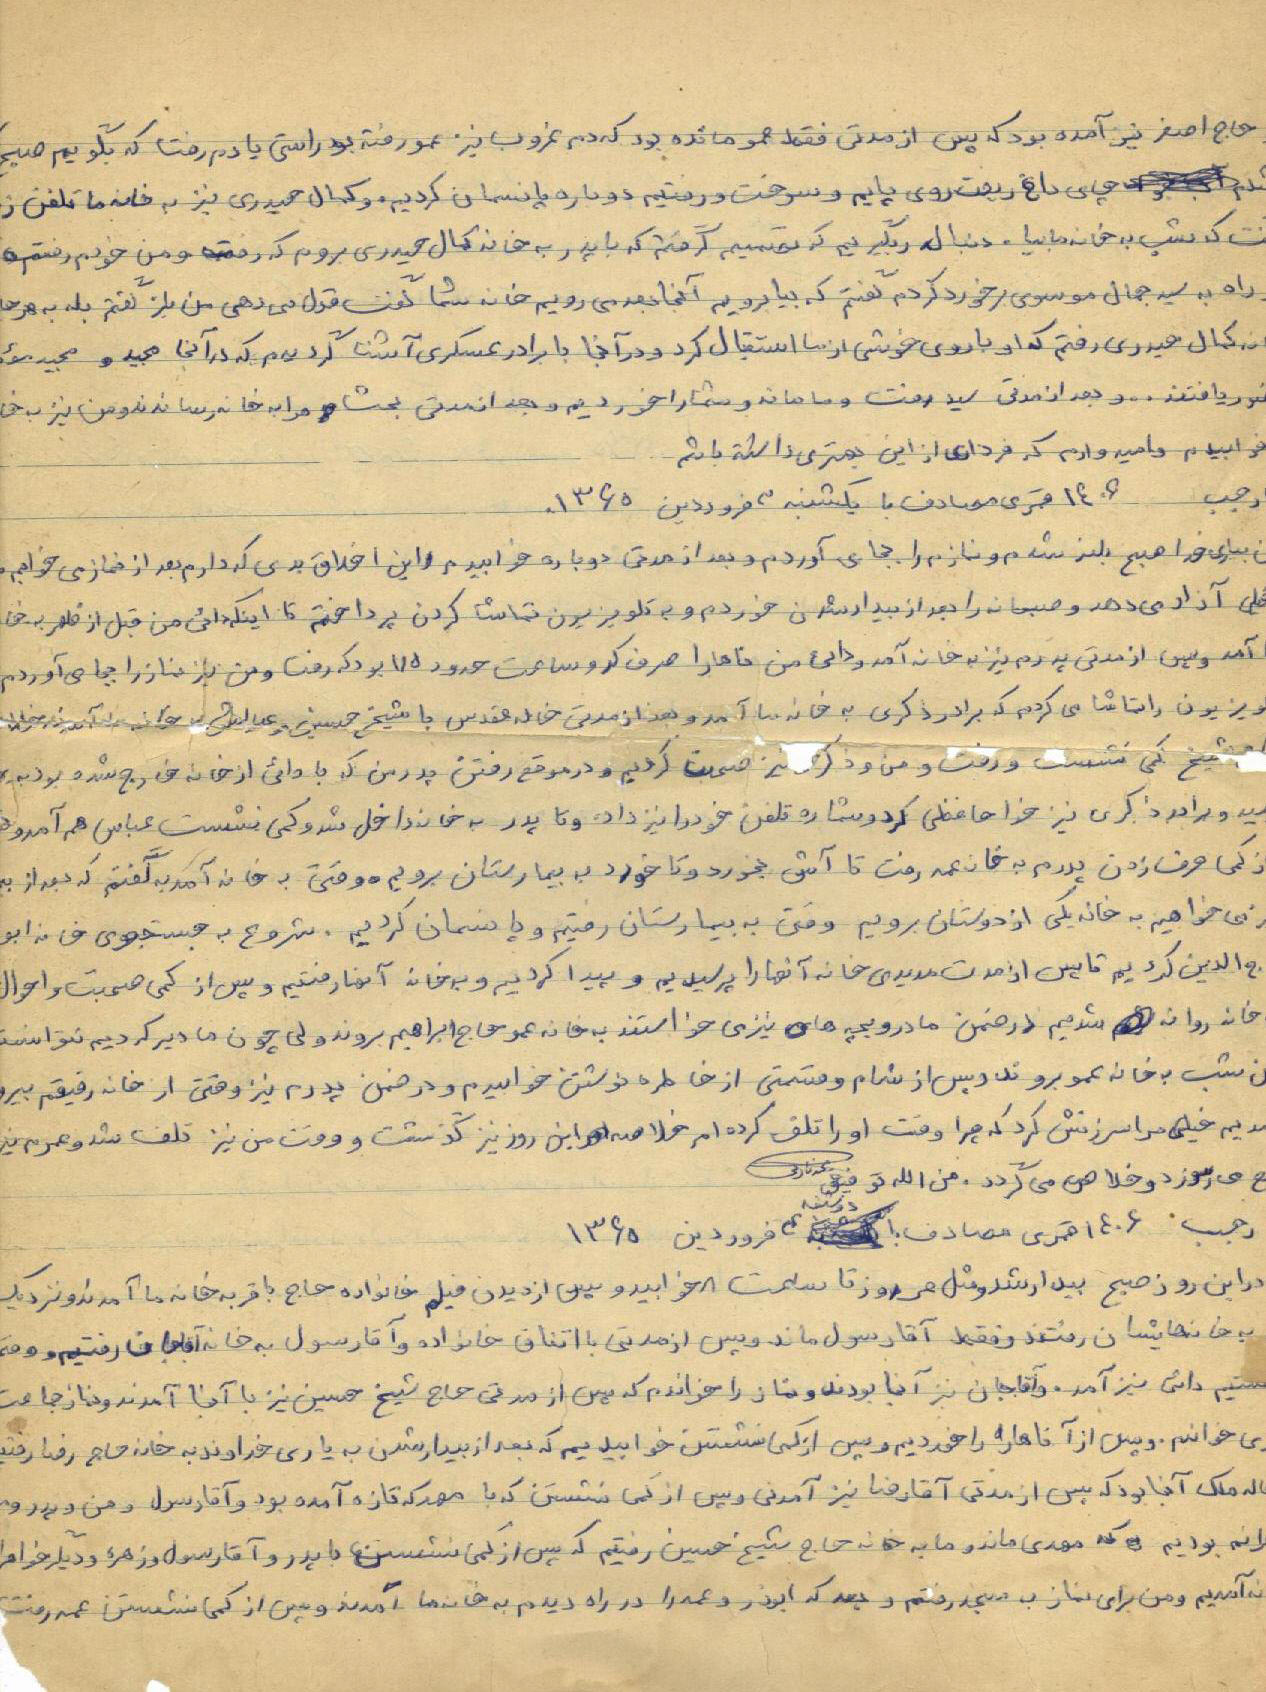 حاج اصغر نیز آمده بود که پس از مدتی فقط عمو مانده بود که دم غروب نیز عمو رفته بود راستی یادم رفت که بگویم صبح
چای داغ ریخت روی پایم و سوخت و رفتیم دوباره پانسمان کردیم. و کمال حیدری نیز به خانه ما تلفن
که شب به خانه ما بیا. دنبال دیگیریم که تصمیم گرفتم که با پدر به خانه کمال حیدری بروم که رفتم و من خودم رفتم
راه به سید جمال موسوی برخورد کردم گفتم که بیا برویم آنجا بعد می رویم خانه شما گفت قول می دهی من نیز گفتم بله به هر حال
کمال حیدری رفتم که او با روی خوشی از ما استقبال کرد و در آنجا با برادر عسکری آشنا گردیدم که در آنجا مجید و مجید
یافتند .. و بعد از مدتی سید رفت و ما ماندیم و شام را خوردیم و بعد از مدتی بحث مرا به خانه رساندند و من نیز به
خوابیدم و امیدوارم که فردای از این بهتری داشته باشم
رجب ۱۴۰۶ قمری مصادف با یکشنبه ۳ فروردین ۱۳۶۵.
بیاری خدا صبح بلند شدم و نمازم را بجای آوردم و بعد از مدتی دوباره خوابیدم و این اخلاق بدی که دارم بعد از نماز می خوابم
آزار می دهد و صبحانه را بعد از بیدار شدن خوردم و به تلویزیون تماشا کردن پرداختم تا اینکه دائی من قبل از ظهر به
آمد و پس از مدتی پدرم نیز به خانه آمد و دائی من ناهار را صرف کرد و ساعت حدود ۱/۵ بود که رفت و من نیز نماز را بجا می آوردم
تلویزیون را تماشا می کردم که برادر ذکری به خانه ما آمد و بعد از مدتی خاله مقدس با شیخ حسین و عیالش به خانه ما آمدند
شیخ کمی نشست و رفت و من و ذکری نیز صحبت کردیم و در موقع رفتن پدر من که با دائی از خانه خارج شده بود
و برادر ذکری نیز خداحافظی کرد و شماره تلفن خود را نیز داد، و تا پدر به خانه داخل شد و کمی نشست عباس هم آمد و
از کمی حرف زدن پدرم به خانه عمه رفت تا آش بخورد و تا خورد به بیمارستان برویم و وقتی به خانه آمد به گفتم که بعد از
می خواهیم به خانه یکی از دوستان برویم وقتی به بیمارستان رفتیم و پانسمان کردیم . شروع به جستجوی خانه
الدین کردیم تا پس از مدت مدیدی خانه آنها را پرسیدیم و پیدا کردیم و به خانه آنها رفتیم و پس از کمی صحبت و احوال
خانه روانه شدیم در ضمن مادر و بچه های نیز می خواستند به خانه عمو حاج ابراهیم بروند ولی چون ما دیر کردیم نتوانستند
شب به خانه عمو بروند و پس از شام و قسمتی از خاطره نوشتن خوابیدم و در ضمن پدرم نیز وقتی از خانه رفیقم
خیلی مرا سرزنش کرد که چرا وقت او را تلف کرده ام خلاصه این روز نیز گذشت و وقت من نیز تلف شد و عمرم نیز
می سوزد و خلاص می گردد . من الله توفیق
رجب ۱۴۰۶ قمری مصادف با دوشنبه ۴ فروردین ۱۳۶۵
در این روز صبح بیدار شد و مثل هر روز تا ساعت ۸ خوابید و پس از دیدن فیلم خانواده حاج باقر به خانه ما آمدند و نزدیک
به خانه هایشان رفتند و فقط آقا رسول ماند و پس از مدتی با اتفاق خانواده و آقا رسول به خانه آقاجان رفتیم و وقتی
دائی نیز آمد. و آقاجان نیز آنجا بودند و نماز را خواندم که پس از مدتی حاج شیخ حسین نیز با آنجا آمدند و نماز جماعت
خواندم. و پس از آن ناهار را خوردیم و پس از کمی نشستن خوابیدیم که بعد از بیدار شدن به یاری خداوند به خانه حاج رضا رفتیم
خاله ملک آنجا بود که پس از مدتی آقا رضا نیز آمدنی و پس از کمی نشستن که با مهد که تازه آمده بود و آقا رسول و من و پدر و
بودیم که مهدی ماند و ما به خانه حاج شیخ حسین رفتیم که پس از کمی نشستن با پدر و آقا رسول و زهره و دیگر خواهرانم
آمدیم و من برای نماز به مسجد رفتم و بعد که ابوذر و عمه را در راه دیدم به خانه ما آمدند و پس از کمی نشستن عمه رفت